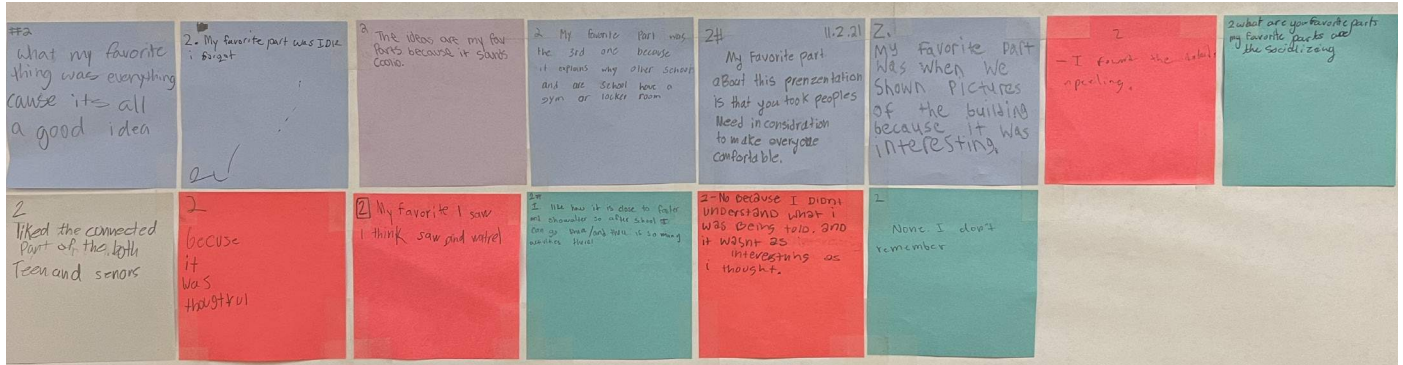 #2
what my favorite
thing was everything
cause its all
a good idea
2. My favorite part was IDK
i forgot
2
The ideas are my fav
Parts because it sounds
Coolio.
2 My favorite Part was
the 3rd one because
it explains why other school
and are school have a
gym or locker room
2# 11.2.21
My Favorite part
about this prenzentation
Is that you took peoples
Need in considration
to make everyone
comfortable.
2.
My favorite part
was when we
shown pictures
of the building
because it was
interesting.
2
- I found the
apeeling.
2 what are you favorite parts
my favorite parts are
the socializing
2
liked the connected
Part of the both
Teen and senors
2
becuse
it
was
thoughtful
2 My favorite I saw
I think saw and
2#
I like how it is close to foster
so after shool I
can go
2-No because I Didnt
understand what i
was being told, and
it wasnt as
interesting as
i thought.
2
None I don't
remember